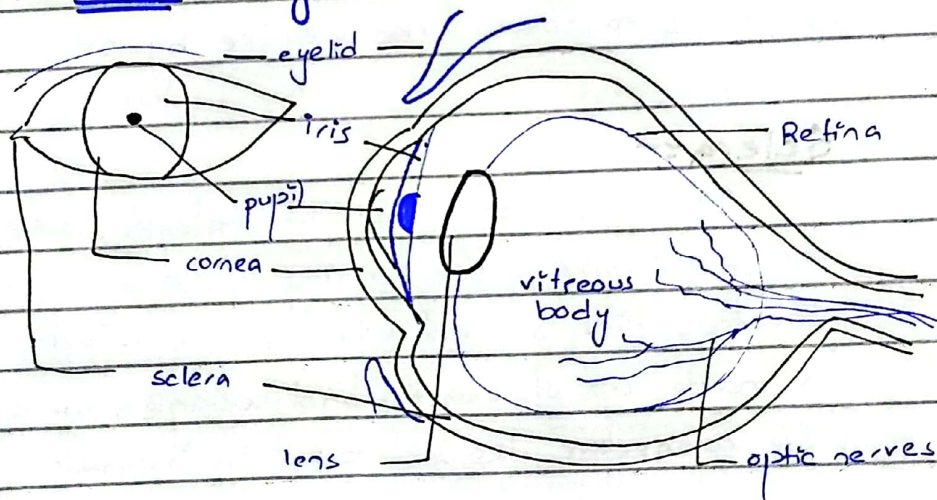 eyelid
iris
Retina
pupil
cornea
vitreous
body
sclera
lens
optic nerves